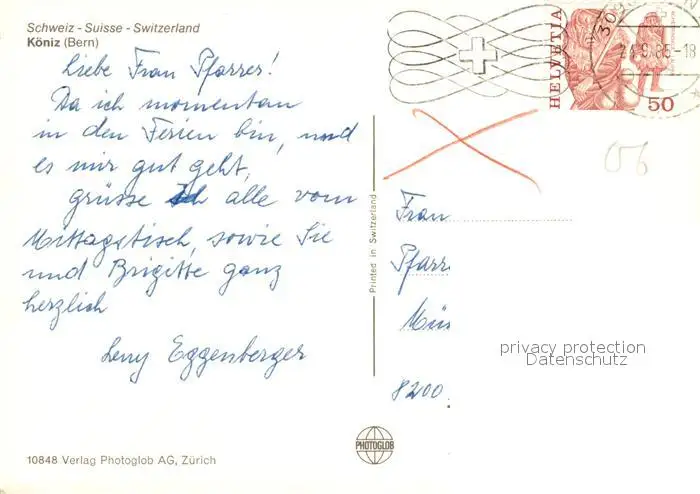 Schweiz - Suisse - Switzerland
Köniz (Bern)
Liebe Frau Pfarrer!
Da ich momentan
in den Ferien bin, und
es mir gut geht,
grüsse ich alle vom
Mittagstisch, sowie Sie
und Brigitte ganz
herzlich
Leny Eggenberger
10848 Verlag Photoglob AG, Zürich
Printed in Switzerland
PHOTOGLOB
HELVETIA
50
24.9.85-18
06
Frau
Pfarr
Mün
8200
privacy protection
Datenschutz